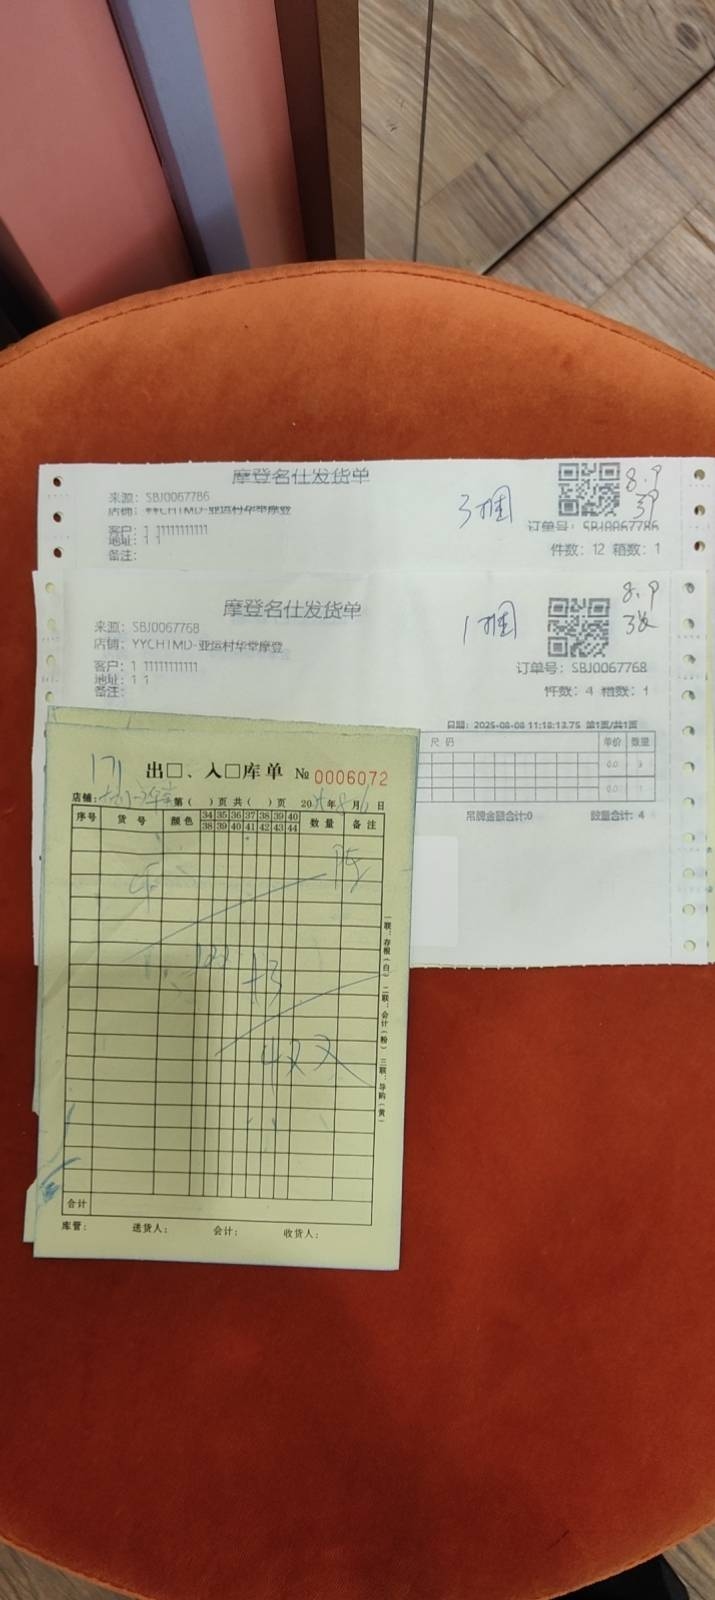 摩登名仕发货单
来源：SBJ0067786
店铺：YYCHTMD-亚运村华堂摩登
客户：1 11111111111
地址：1 1
备注：
3捆
8.9
订单号：SBJ0067786
件数：12 箱数：1
摩登名仕发货单
来源：SBJ0067768
店铺：YYCHTMD-亚运村华堂摩登
客户：1 11111111111
地址：1 1
备注：
1捆
8.9
订单号：SBJ0067768
件数：4 箱数：1
日期：2025-08-08 11:18:13.75 第1页/共1页
尺码 单价 数量
0.0 3
0.0 1
吊牌金额合计:0 数量合计：4
171
出□、入□库单 № 0006072
店铺： 第（ ）页 共（ ）页 20 年 月 日
序号 货号 颜色 34 35 36 37 38 39 40 数量 备注
38 39 40 41 42 43 44
42双
合计
库管： 送货人： 会计： 收货人：
一联：存根（白） 二联：会计（粉） 三联：导购（黄）